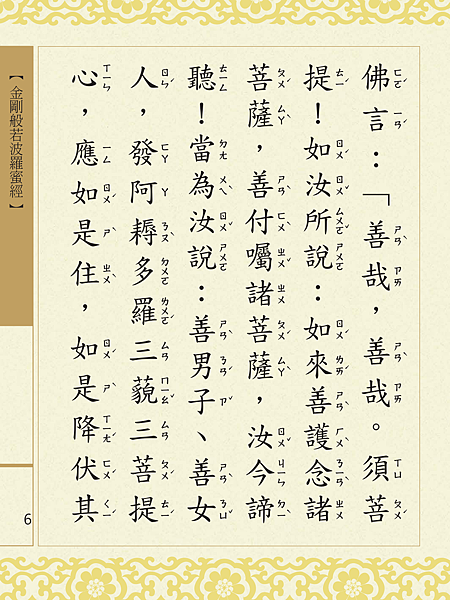 佛言：「善哉，善哉。須菩
提！如汝所說：如來善護念諸
菩薩，善付囑諸菩薩，汝今諦
聽！當為汝說：善男子、善女
人，發阿耨多羅三藐三菩提
心，應如是住，如是降伏其
【金剛般若波羅蜜經】
6